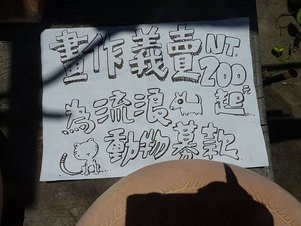 畫作義賣NT200起
為流浪
動物募款